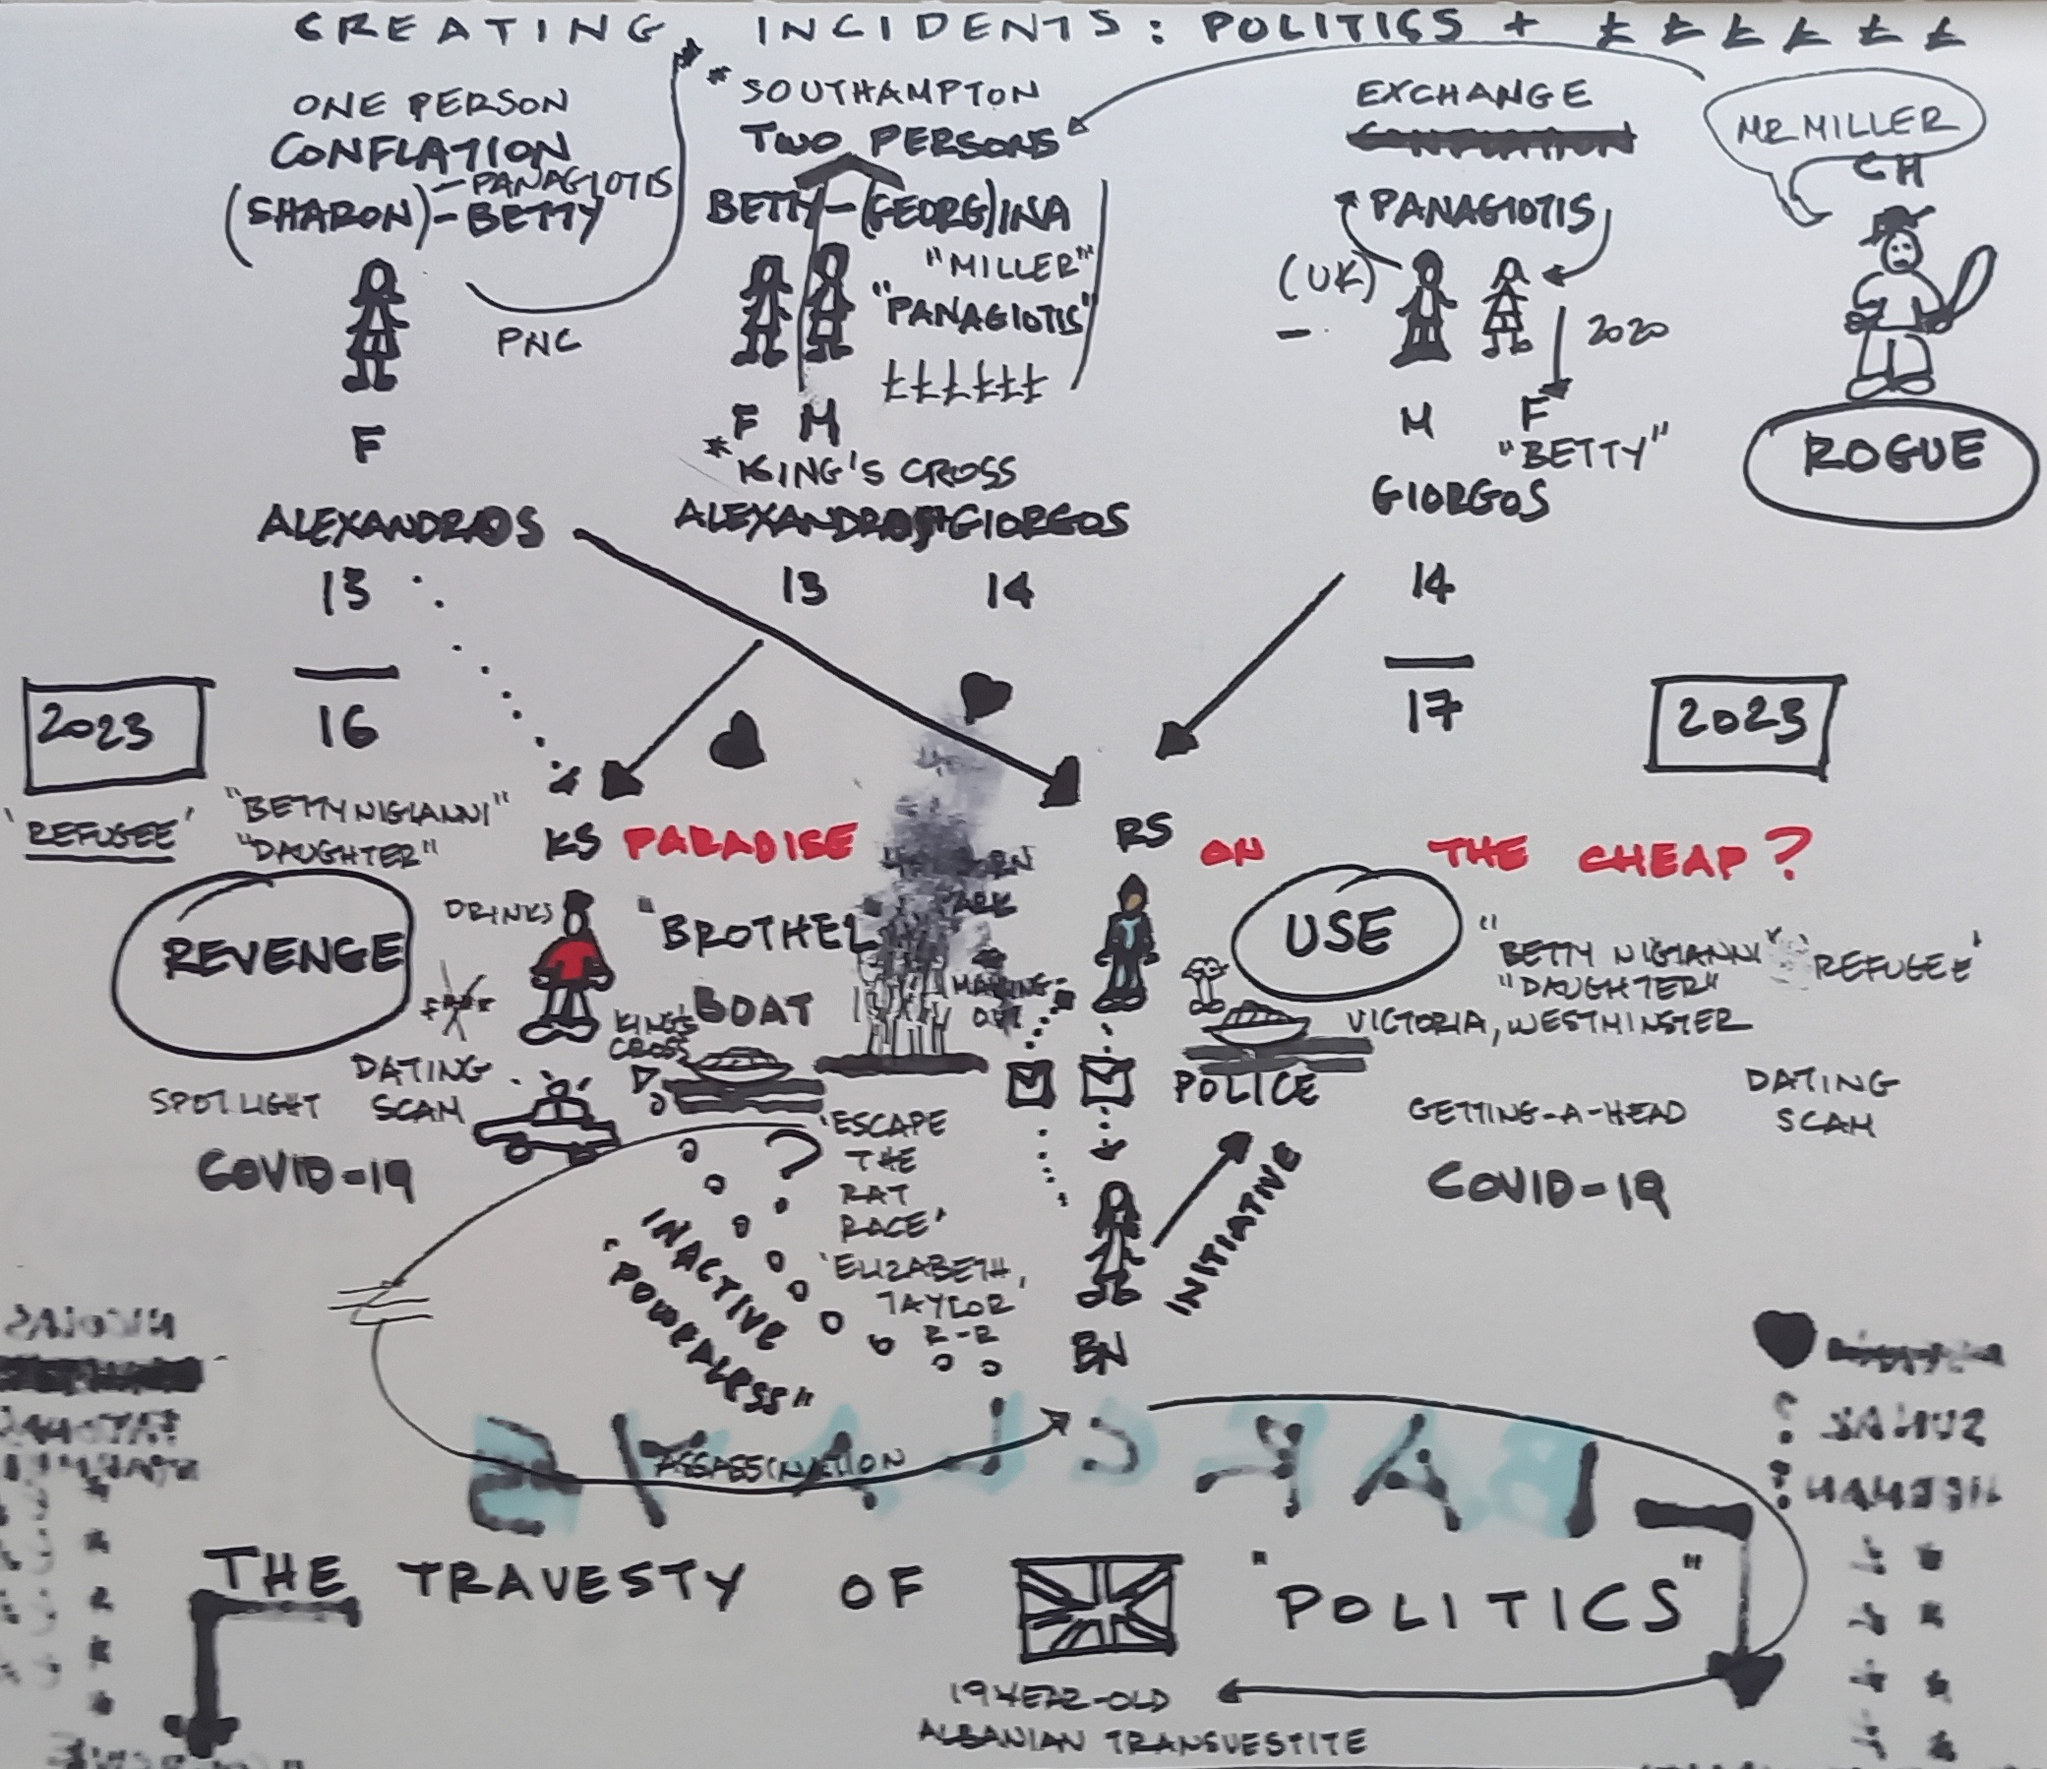 CREATING INCIDENTS: POLITICS + £ £ £ £ £ £
ONE PERSON
CONFLATION
- PANAGIOTIS
(SHARON) - BETTY
PNC
F
ALEXANDROS
13
16
* SOUTHAMPTON
TWO PERSONS
BETTY - (GEORG)INA
"MILLER"
"PANAGIOTIS"
££££££
F M
* KING'S CROSS
ALEXANDROS + GIORGOS
13 14
EXCHANGE
PANAGIOTIS
(UK)
-
2020
M F
"BETTY"
GIORGOS
14
17
MR MILLER
CH
ROGUE
2023
'REFUGEE'
"BETTY NIGIANNI"
"DAUGHTER"
REVENGE
KS PARADISE
RS ON THE CHEAP?
2023
DRINKS
"BROTHEL
BOAT
KING'S
CROSS
DATING
SCAM
SPOTLIGHT
COVID-19
MAKING
OUT
USE
"BETTY NIGIANNI"
"DAUGHTER"
'REFUGEE'
VICTORIA, WESTMINSTER
POLICE
GETTING-A-HEAD
DATING
SCAM
COVID-19
'ESCAPE
THE
RAT
RACE'
'ELIZABETH
TAYLOR'
R-R
?
INACTIVE
"POWERLESS"
INITIATIVE
BN
ASSASSINATION
THE TRAVESTY OF "POLITICS"
19 YEAR-OLD
ALBANIAN TRANSVESTITE